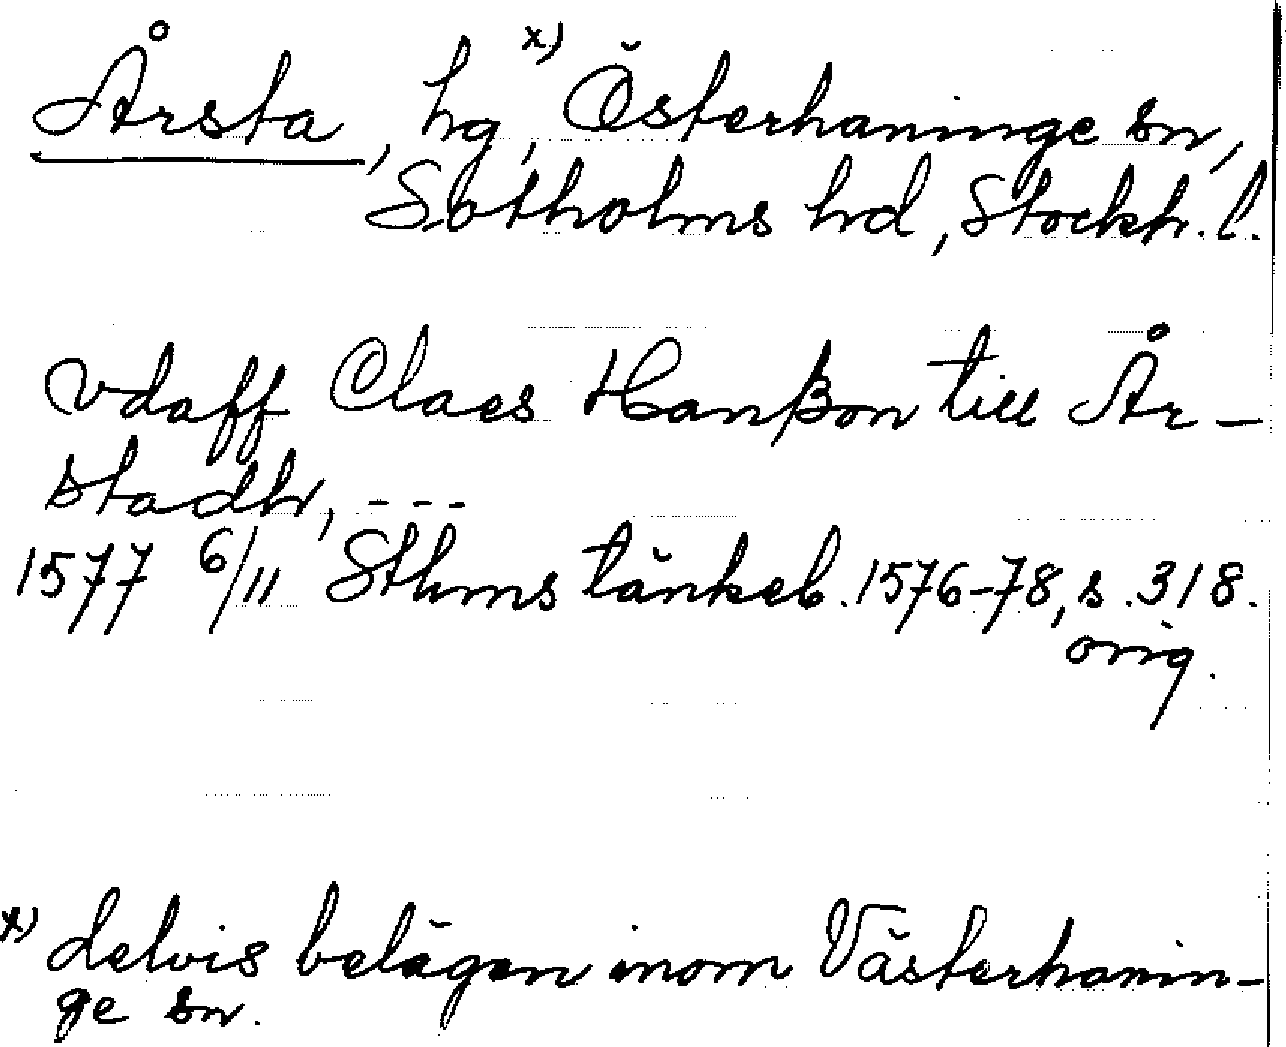 Årsta, hg,ˣ⁾ Österhaninge sn,
Sotholms hd, Stockh. l.
vdaff Claes Hanßon till År-
stadh, ---
1577 6/11 Sthms tänkeb. 1576-78, s. 318.
orig.
x) delvis belägen inom Västerhanin-
ge sn.